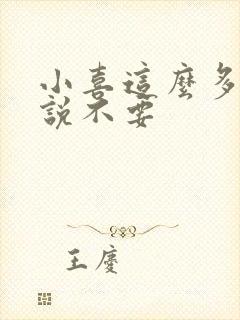 小喜這麼多
說不要
王慶